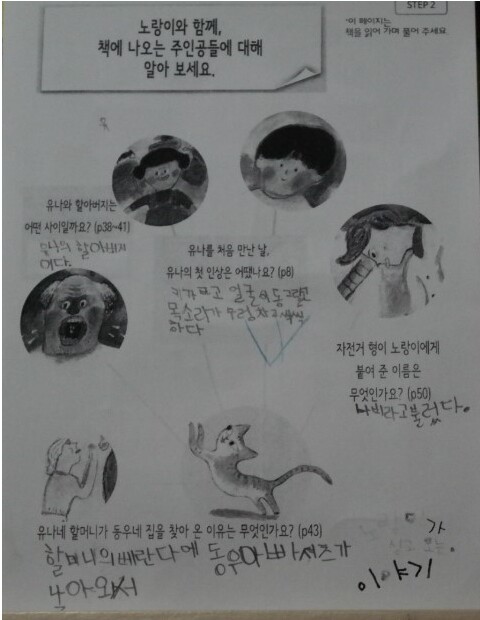 STEP 2
노랑이와 함께,
책에 나오는 주인공들에 대해
알아 보세요.
*이 페이지는
책을 읽어 가며 풀어 주세요.
유나와 할아버지는
어떤 사이일까요? (p38~41)
유나의 할아버지
이다.
유나를 처음 만난 날,
유나의 첫 인상은 어땠나요? (p8)
키가 크고 얼굴이 동그랗고
목소리가 우렁차고 씩씩
하다
자전거 형이 노랑이에게
붙여 준 이름은
무엇인가요? (p50)
나비라고 불렀다.
유나네 할머니가 동우네 집을 찾아 온 이유는 무엇인가요? (p43)
할머니의 베란다에 동우아빠 셔츠가
가
이야기